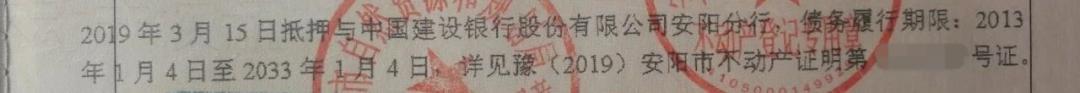 2019年3月15日抵押与中国建设银行股份有限公司安阳分行，债务履行期限：2013
年1月4日至2033年1月4日，详见豫（2019）安阳市不动产证明第 号证。